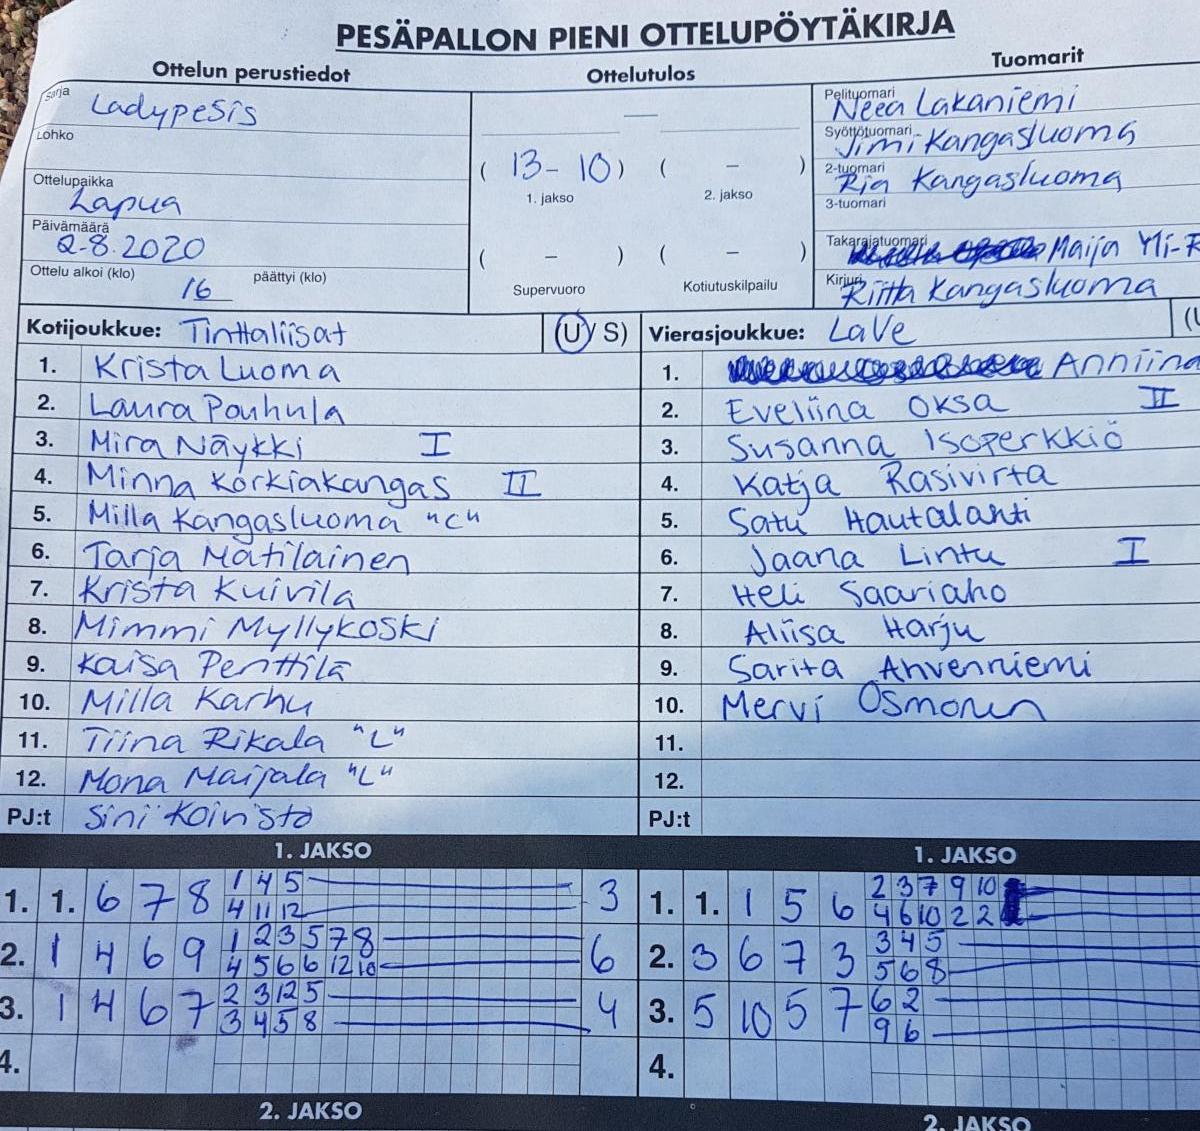 PESÄPALLON PIENI OTTELUPÖYTÄKIRJA
Ottelun perustiedot
Ottelutulos
Tuomarit
Sarja
Ladypesis
Lohko
Ottelupaikka
Lapua
Päivämäärä
2.8.2020
Ottelu alkoi (klo) 16 päättyi (klo)
—
( 13 - 10 ) ( - )
1. jakso 2. jakso
( - ) ( - )
Supervuoro Kotiutuskilpailu
Pelituomari
Neea Lakaniemi
Syöttötuomari
Jimi Kangasluoma
2-tuomari
Ria Kangasluoma
3-tuomari
Takarajatuomari
Maija Yli-R
Kirjuri
Riitta Kangasluoma
Kotijoukkue: Tinttaliisat (U / S)
1. Krista Luoma
2. Laura Pouhula
3. Mira Näykki I
4. Minna Korkiakangas II
5. Milla Kangasluoma "C"
6. Tarja Matilainen
7. Krista Kuivila
8. Mimmi Myllykoski
9. Kaisa Penttilä
10. Milla Karhu
11. Tiina Rikala "L"
12. Mona Maijala "L"
PJ:t Sini Koivisto
Vierasjoukkue: LaVe (U
1. Anniina
2. Eveliina Oksa II
3. Susanna Isoperkkiö
4. Katja Rasivirta
5. Satu Hautalahti
6. Jaana Lintu I
7. Heli Saariaho
8. Aliisa Harju
9. Sarita Ahvenniemi
10. Mervi Osmonen
11.
12.
PJ:t
1. JAKSO
1. 1. 6 7 8 1 4 5 3
4 11 12
2. 1 4 6 9 1 2 3 5 7 8 6
4 5 6 6 12 10
3. 1 4 6 7 2 3 12 5 4
3 4 5 8
4.
2. JAKSO
1. JAKSO
1. 1. 1 5 6 2 3 7 9 10
4 6 10 2 2
2. 3 6 7 3 3 4 5
5 6 8
3. 5 10 5 7 6 2
9 6
4.
2. JAKSO